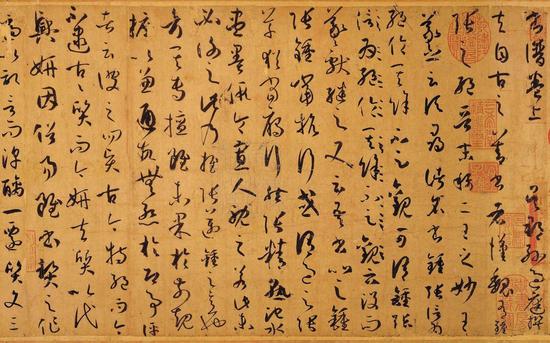 書譜卷上 吳郡孫過庭撰
夫自古之善書者漢魏有鍾
張之絕晉末稱二王之妙王
羲之云頃尋諸名書鍾張信為
絕倫其餘不足觀可謂鍾張
信為絕倫其餘不足觀云沒而
羲獻繼之又云吾書比之鍾
張鍾當抗行或謂過之張
草猶當雁行然張精熟池水
盡墨假令寡人耽之若此未
必謝之此乃推張邁鍾之意也
考其專擅雖未果於前規
摭以兼通故無慚於即事評
者云彼之四賢古今特絕而今
不逮古古質而今妍夫質以代
興妍因俗易雖書契之作
適以記言而淳醨一遷質文三